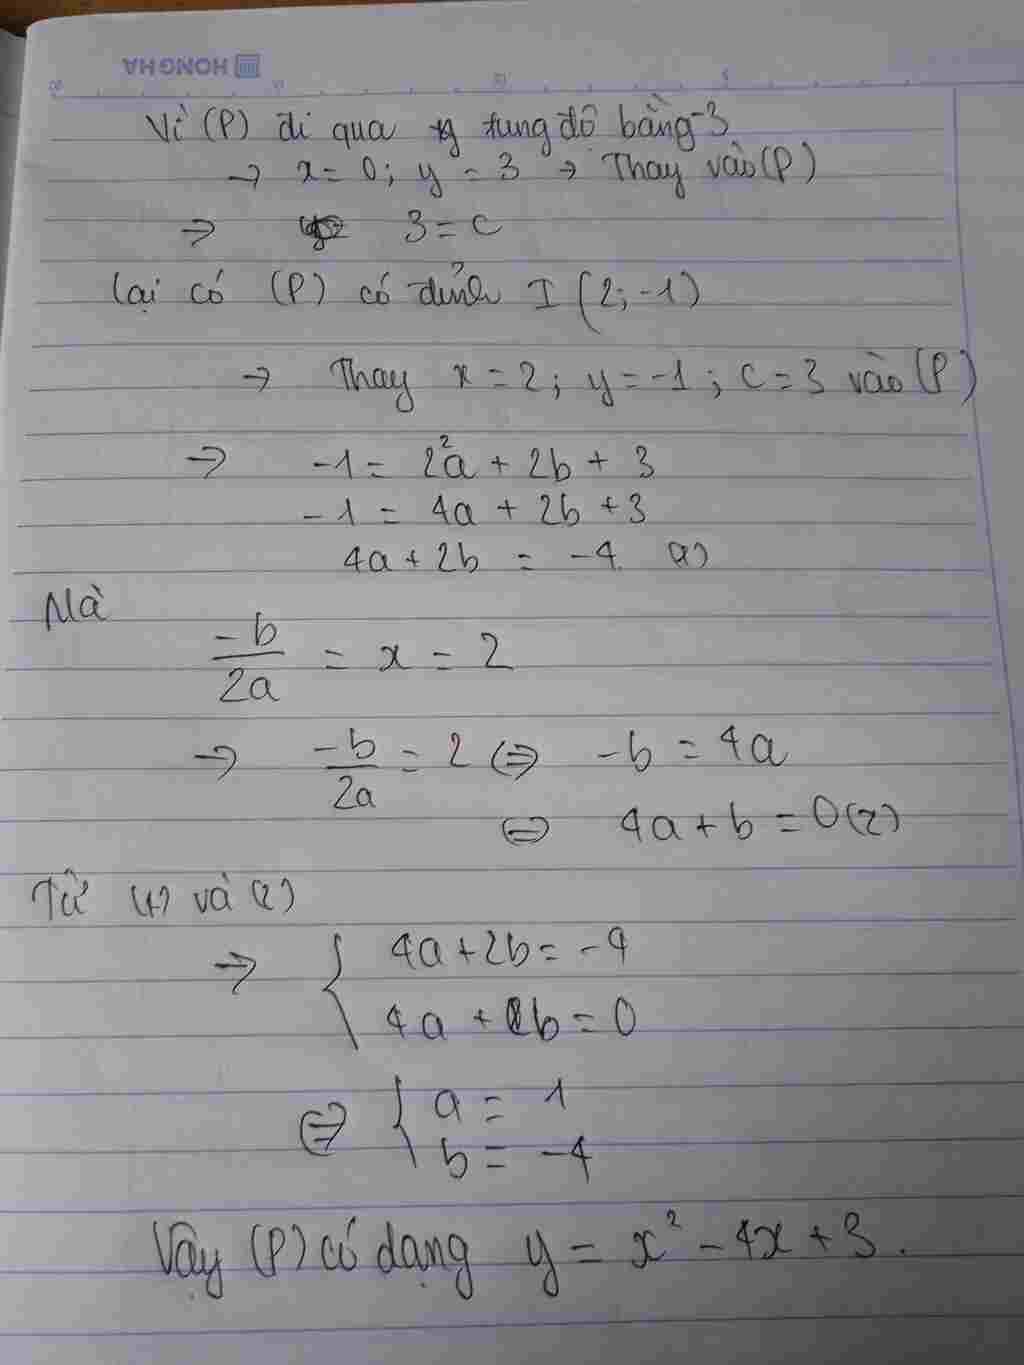 HONGHA
Vì (P) đi qua tung độ bằng -3
→ x = 0; y = 3 → Thay vào (P)
⇒ 3 = c
lại có (P) có đỉnh I (2; -1)
→ Thay x = 2; y = -1; c = 3 vào (P)
⇒ -1 = 2²a + 2b + 3
-1 = 4a + 2b + 3
4a + 2b = -4 (1)
Mà
-b/2a = x = 2
→ -b/2a = 2 ⇔ -b = 4a
⇔ 4a + b = 0 (2)
Từ (1) và (2)
⇒ { 4a + 2b = -4
4a + b = 0
⇔ { a = 1
b = -4
Vậy (P) có dạng y = x² - 4x + 3.